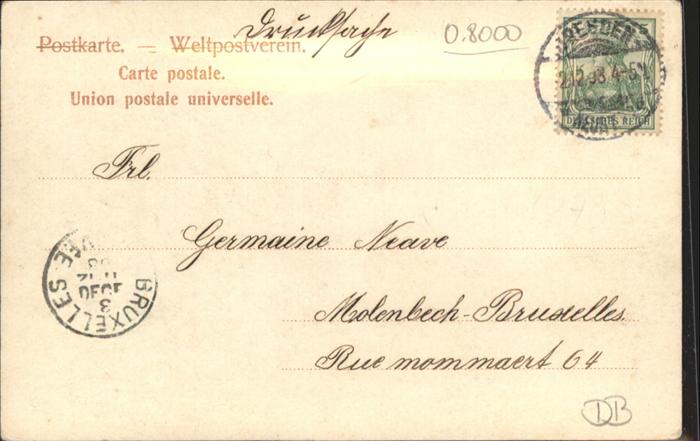 Drucksache
0.8000
Postkarte. — Weltpostverein.
Carte postale.
Union postale universelle.
DRESDEN
4-5N
DEUTSCHES REICH
Frl.
Germaine Neave
Molenbech-Bruxelles
Rue mommaert 64
BRUXELLES
3
DECE
DB